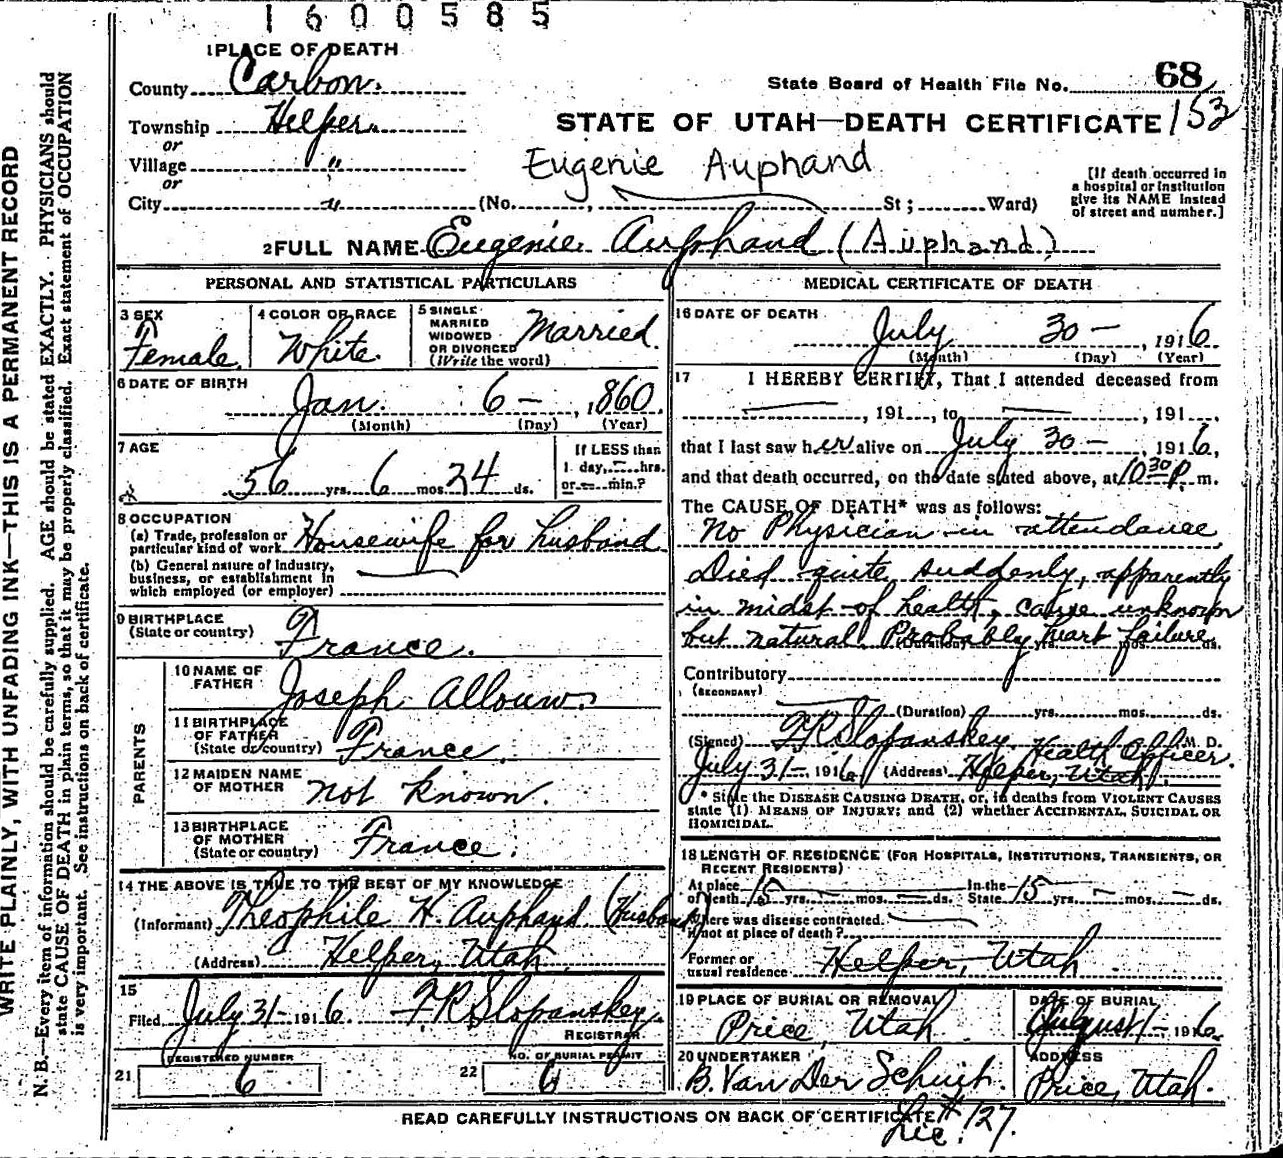 1600585
1 PLACE OF DEATH
County Carbon.
State Board of Health File No. 68
Township Helper.
STATE OF UTAH—DEATH CERTIFICATE 153
or
Village "
Eugenie Auphand
or
City "
(No. , St ; Ward)
[If death occurred in
a hospital or institution
give its NAME instead
of street and number.]
2 FULL NAME Eugenie Auphand (Auphand)
PERSONAL AND STATISTICAL PARTICULARS
3 SEX
Female.
4 COLOR OR RACE
White.
5 SINGLE
MARRIED
WIDOWED
OR DIVORCED
(Write the word)
Married.
6 DATE OF BIRTH
Jan. 6 – , 1860.
(Month) (Day) (Year)
7 AGE
56 yrs. 6 mos. 24 ds.
If LESS than
1 day, – hrs.
or – min.?
8 OCCUPATION
(a) Trade, profession or
particular kind of work Housewife for husband
(b) General nature of Industry,
business, or establishment in
which employed (or employer)
9 BIRTHPLACE
(State or country) France.
PARENTS
10 NAME OF
FATHER Joseph Allouw.
11 BIRTHPLACE
OF FATHER
(State or country) France.
12 MAIDEN NAME
OF MOTHER not known.
13 BIRTHPLACE
OF MOTHER
(State or country) France.
14 THE ABOVE IS TRUE TO THE BEST OF MY KNOWLEDGE
(Informant) Theophile H. Auphand. (Husband)
(Address) Helper, Utah.
15
Filed July 31 – 1916 F.R. Slopanskey.
REGISTRAR
REGISTERED NUMBER
21 6
NO. OF BURIAL PERMIT
22 6
MEDICAL CERTIFICATE OF DEATH
16 DATE OF DEATH
July 30 – , 1916
(Month) (Day) (Year)
17 I HEREBY CERTIFY, That I attended deceased from
— , 191 , to — , 191 ,
that I last saw her alive on July 30 – 1916,
and that death occurred, on the date stated above, at 10 30 P. m.
The CAUSE OF DEATH* was as follows:
No Physician in attendance
Died quite suddenly, apparently
in midst of health, cause unknown
but natural. Probably heart failure.
(Duration) yrs. mos. ds.
Contributory
(SECONDARY)
(Duration) yrs. mos. ds.
(Signed) F.R. Slopanskey. Health Officer. M. D.
July 31 – , 1916 (Address) Helper, Utah.
* State the DISEASE CAUSING DEATH, or, in deaths from VIOLENT CAUSES
state (1) MEANS OF INJURY; and (2) whether ACCIDENTAL, SUICIDAL OR
HOMICIDAL.
18 LENGTH OF RESIDENCE (FOR HOSPITALS, INSTITUTIONS, TRANSIENTS, OR
RECENT RESIDENTS)
At place
of death 15 yrs. – mos. – ds.
In the
State 15 yrs. – mos. – ds.
Where was disease contracted.
if not at place of death?
Former or
usual residence Helper, Utah
19 PLACE OF BURIAL OR REMOVAL
Price, Utah
DATE OF BURIAL
August 1 – 1916
20 UNDERTAKER
B. Van Der Schuit.
ADDRESS
Price, Utah.
READ CAREFULLY INSTRUCTIONS ON BACK OF CERTIFICATE
Lic. # 127.
WRITE PLAINLY, WITH UNFADING INK—THIS IS A PERMANENT RECORD
N. B.—Every item of information should be carefully supplied. AGE should be stated EXACTLY. PHYSICIANS should
state CAUSE OF DEATH in plain terms, so that it may be properly classified. Exact statement of OCCUPATION
is very important. See instructions on back of certificate.